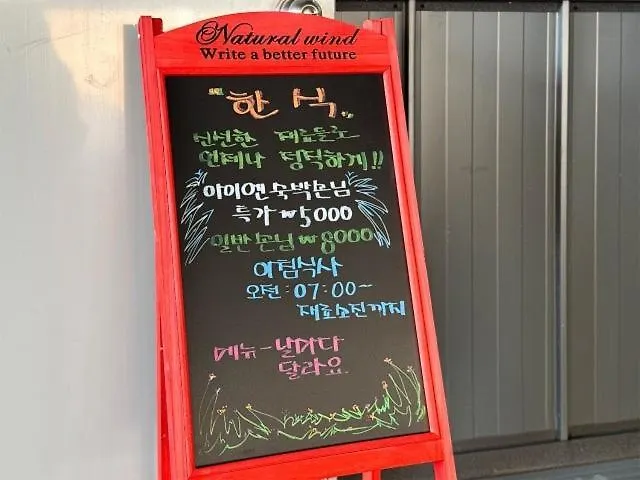 Natural wind
Write a better future
"한식"
신선한 재료들로
언제나 정직하게!!
아이엔숙박손님
특가 ₩5000
일반손님 ₩8000
아침식사
오전 : 07:00~
재료소진까지
메뉴-날마다
달라요